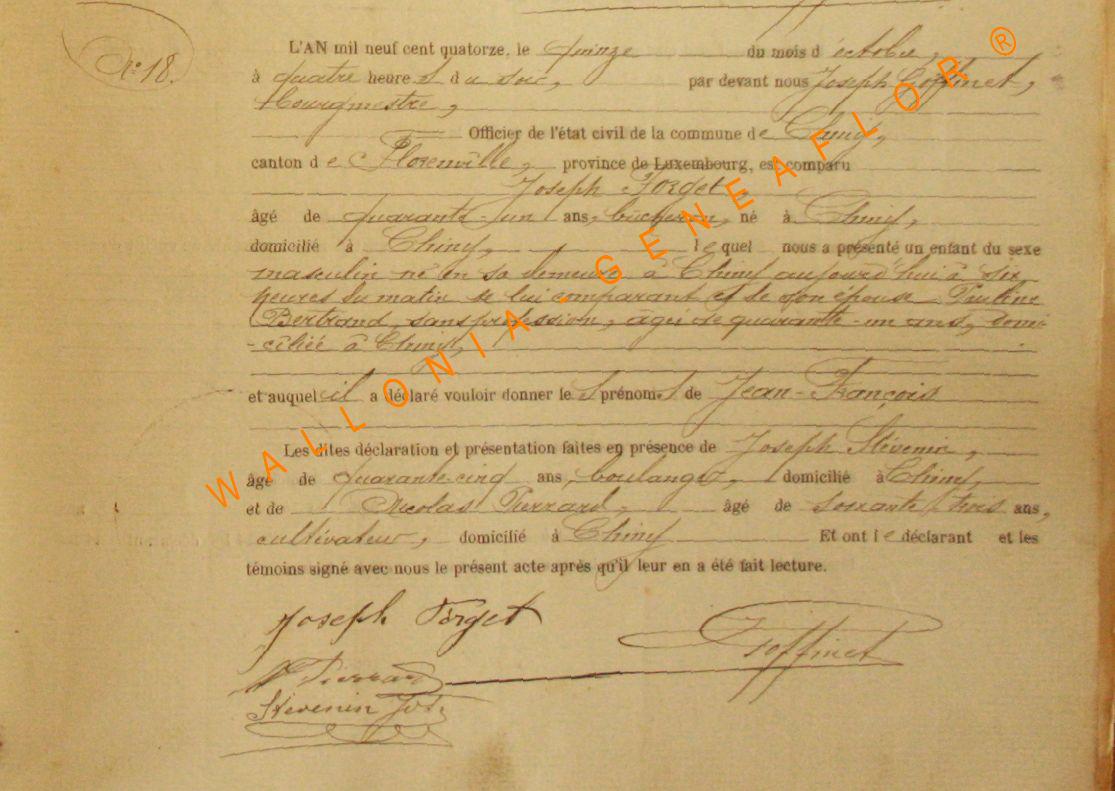 N° 18.
L'AN mil neuf cent quatorze, le quinze du mois d'octobre,
à quatre heures du soir, par devant nous Joseph Goffinet,
Bourgmestre,
Officier de l'état civil de la commune de Chiny,
canton de Florenville, province de Luxembourg, est comparu
Joseph Forget,
âgé de quarante-un ans, bûcheron, né à Chiny,
domicilié à Chiny, lequel nous a présenté un enfant du sexe
masculin né en sa demeure à Chiny aujourd'hui à six
heures du matin de lui comparant et de son épouse Pauline
Bertrand, sans profession, âgée de quarante-un ans, domi-
-ciliée à Chiny,
et auquel il a déclaré vouloir donner les prénoms de Jean-François
Les dites déclaration et présentation faites en présence de Joseph Stévenin,
âgé de quarante-cinq ans, boulanger, domicilié à Chiny,
et de Nicolas Pierrard, âgé de soixante trois ans,
cultivateur, domicilié à Chiny Et ont le déclarant et les
témoins signé avec nous le présent acte après qu'il leur en a été fait lecture.
Joseph Forget
Goffinet
N Pierrard
Stévenin Jos.
WALLONIA-GENEAFLOR ®